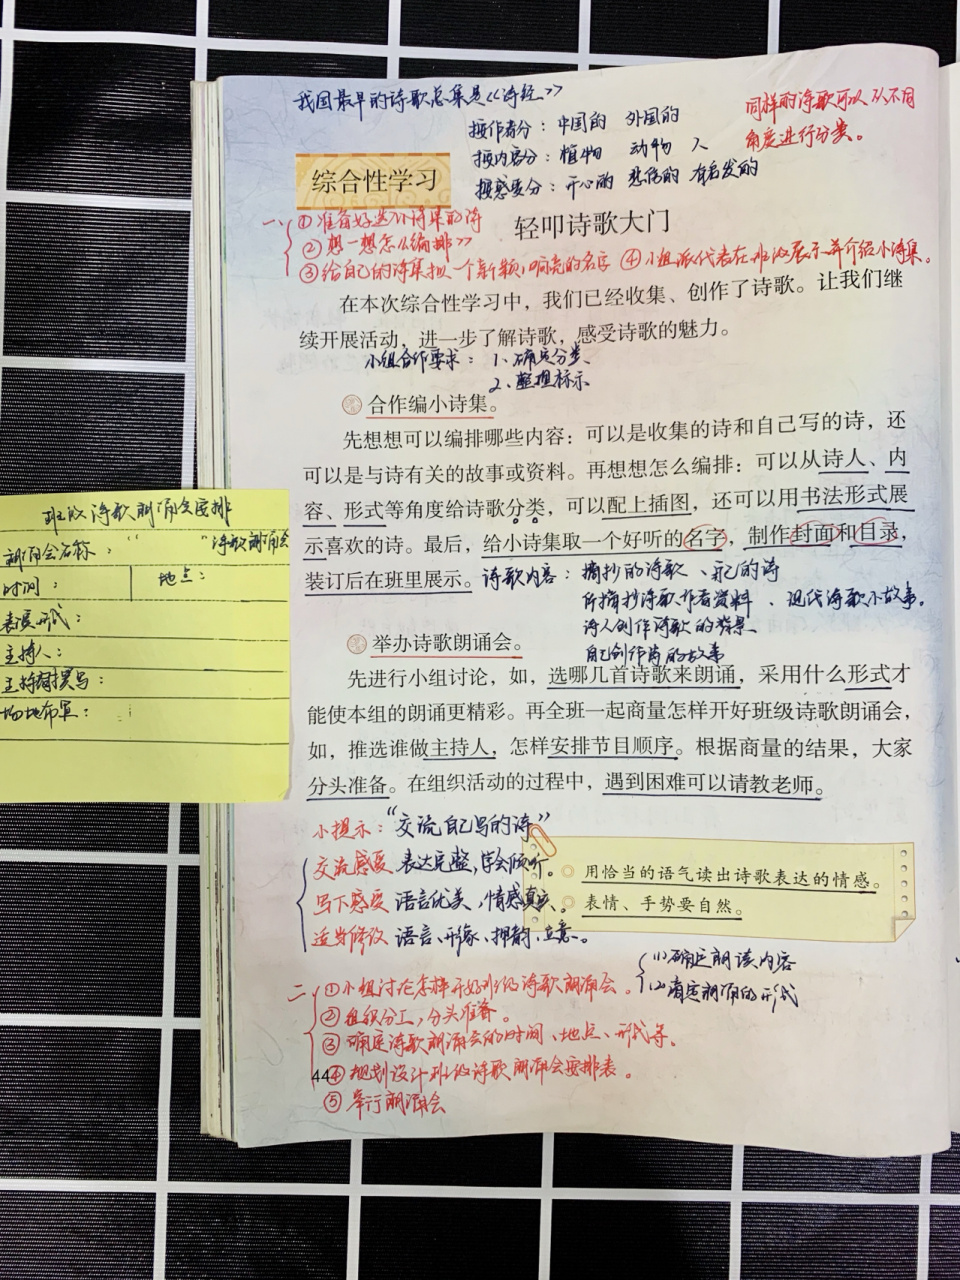 我国最早的诗歌总集是《诗经》
按作者分：中国的 外国的
按内容分：植物 动物 人
按感受分：开心的 悲伤的 有启发的
同样的诗歌可以从不同
角度进行分类。
综合性学习
轻叩诗歌大门
一、①准备好选入诗集的诗
②想一想怎么编排
③给自己的诗集拟一个新颖、响亮的名字 ④小组派代表在班级展示并介绍小诗集。
在本次综合性学习中，我们已经收集、创作了诗歌。让我们继
续开展活动，进一步了解诗歌，感受诗歌的魅力。
小组合作要求：1、确定分类
2、整理标示
合作编小诗集。
先想想可以编排哪些内容：可以是收集的诗和自己写的诗，还
可以是与诗有关的故事或资料。再想想怎么编排：可以从诗人、内
容、形式等角度给诗歌分类，可以配上插图，还可以用书法形式展
示喜欢的诗。最后，给小诗集取一个好听的名字，制作封面和目录，
装订后在班里展示。
诗歌内容：摘抄的诗歌、自己的诗
所摘抄诗歌作者资料、现代诗歌小故事。
诗人创作诗歌的背景
自己创作诗的故事
举办诗歌朗诵会。
先进行小组讨论，如，选哪几首诗歌来朗诵，采用什么形式才
能使本组的朗诵更精彩。再全班一起商量怎样开好班级诗歌朗诵会，
如，推选谁做主持人，怎样安排节目顺序。根据商量的结果，大家
分头准备。在组织活动的过程中，遇到困难可以请教老师。
班级诗歌朗诵会安排
朗诵会名称：“ ”诗歌朗诵会
时间： 地点：
表演形式：
主持人：
主持词撰写：
场地布置：
小提示：“交流自己写的诗”
交流感受 表达完整，学会倾听。
写下感受 语言优美，情感真实。
适当修改 语言、形象、押韵、立意。
用恰当的语气读出诗歌表达的情感。
表情、手势要自然。
(1)确定朗读内容
(2)商定朗诵的形式
二、①小组讨论怎样开好班级诗歌朗诵会。
②组织分工，分头准备。
③确定诗歌朗诵会的时间、地点、形式等。
④规划设计班级诗歌朗诵会安排表。
⑤举行朗诵会
44